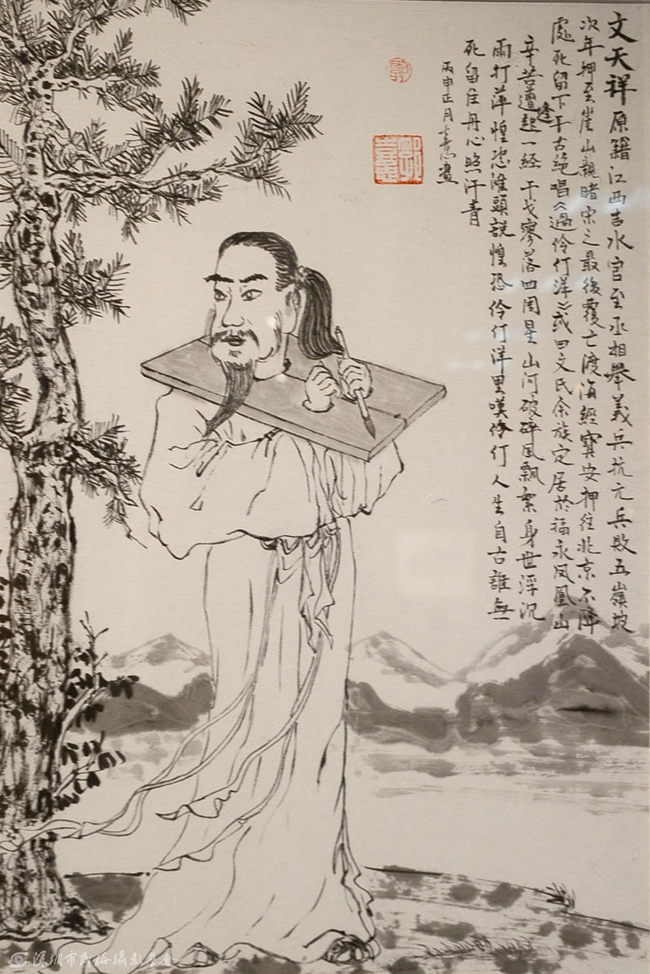 文天祥原籍江西吉水官至丞相舉義兵抗元兵敗五嶺坡
次年押至崖山親睹宋之最後覆亡渡海經寶安押往北京不降
處死留下千古絕唱《過伶仃洋》或曰文氏余族定居於福永凤凰山
辛苦遭逢起一經干戈寥落四周星山河破碎風飄絮身世浮沉
雨打萍惶恐滩頭說惶恐伶仃洋里嘆伶仃人生自古誰無
死留住丹心照汗青
丙申正月
深圳市民俗攝影